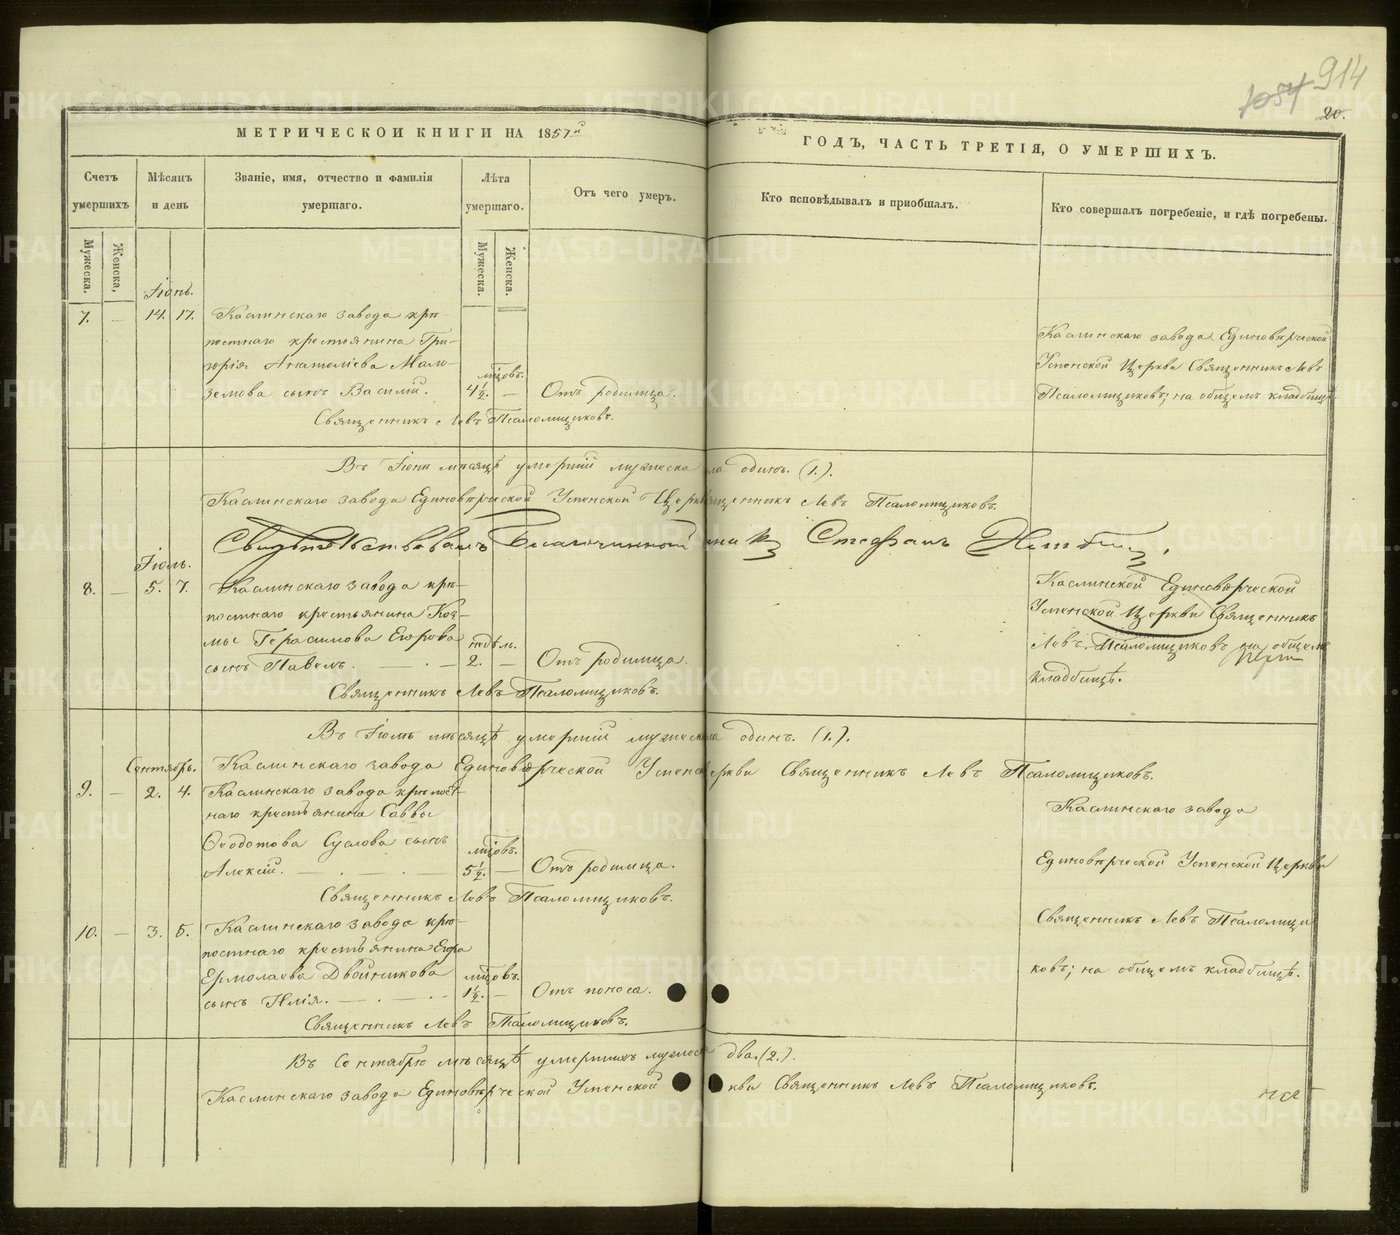 914
1054
20.
МЕТРИЧЕСКОИ КНИГИ НА 1857й
ГОДЪ, ЧАСТЬ ТРЕТІЯ, О УМЕРШИХЪ.
Счетъ умершихъ
Мѣсяцъ и день
Званіе, имя, отчество и фамилія умершаго.
Лѣта умершаго.
Отъ чего умеръ.
Кто исповѣдывалъ и пріобщалъ.
Кто совершалъ погребеніе, и гдѣ погребены.
Мужеска.
Женска,
Мужеска.
Женска.
Іюнь.
7. — 14. 17. Каслинскаго завода крѣ-
постнаго крестьянина Гри-
горія Анатоліева Мало-
земова сынъ Василій.
мцовъ.
4½. — Отъ родимца.
Каслинскаго завода Единовѣрческой
Успенской Церкви Священникъ Левъ
Псаломщиковъ; на общемъ кладбищѣ
Священникъ Левъ Псаломщиковъ.
Въ Іюнѣ мѣсяцѣ умершій мужеска пола одинъ. (1.).
Каслинскаго завода Единовѣрческой Успенской Церкви Священникъ Левъ Псаломщиковъ.
Свидѣтельствовалъ Благочинный Стефанъ
Іюль.
8. — 5. 7. Каслинскаго завода крѣ-
постнаго крестьянина Коз-
мы Герасимова Егорова
сынъ Павелъ.
недѣль.
2. — Отъ родимца.
Каслинской Единовѣрческой
Успенской Церкви Священникъ
Левъ Псаломщиковъ на общемъ
кладбищѣ.
Священникъ Левъ Псаломщиковъ.
Въ Іюлѣ мѣсяцѣ умершій мужеска пола одинъ. (1.).
Каслинскаго завода Единовѣрческой Успенской Церкви Священникъ Левъ Псаломщиковъ.
Сентябрь.
9. — 2. 4. Каслинскаго завода крѣпост-
наго крестьянина Саввы
Ѳеодотова Суслова сынъ
Алексій.
мцовъ.
5½. — Отъ родимца.
Священникъ Левъ Псаломщиковъ.
10. — 3. 5. Каслинскаго завода крѣ-
постнаго крестьянина Егора
Ермолаева Двойникова
сынъ Илія.
мцовъ.
1½. — Отъ поноса.
Каслинскаго завода
Единовѣрческой Успенской Церкви
Священникъ Левъ Псаломщи
ковъ; на общемъ кладбищѣ.
Священникъ Левъ Псаломщиковъ.
Въ Сентябрѣ мѣсяцѣ умершихъ мужеска два. (2.).
Каслинскаго завода Единовѣрческой Успенской Церкви Священникъ Левъ Псаломщиковъ.
METRIKI.GASO-URAL.RU